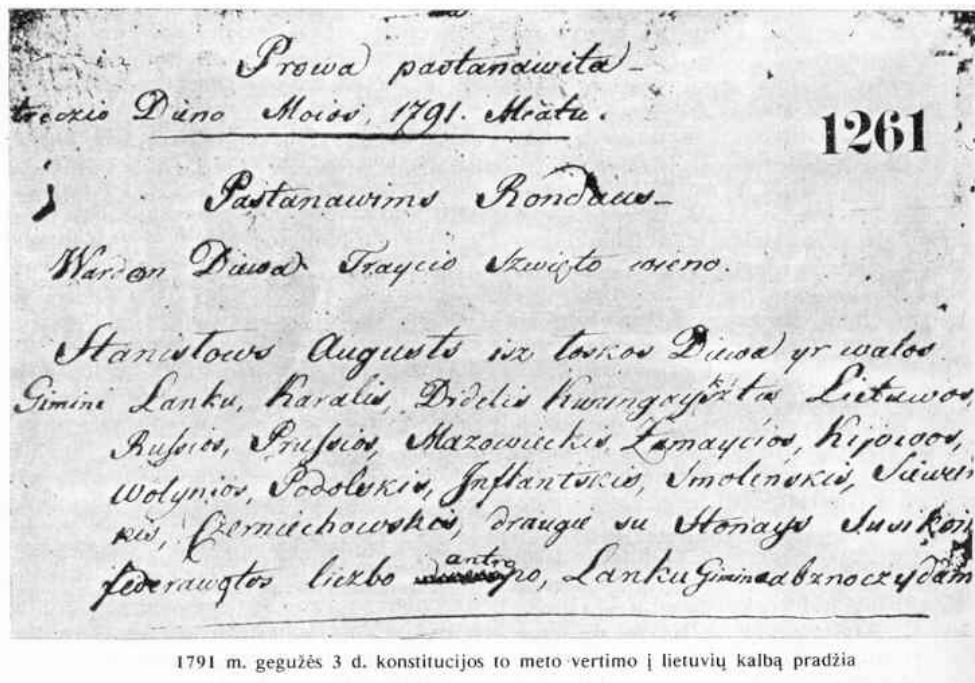 Prowa pastanawita
treczio Dieno Moios, 1791. Mėatu.
1261
Pastanawims Rondaus
Wardan Diewa Traycio Szwięto wieno.
Stanisłows Augusts isz łoskos Diewa yr walos
Gimini Lanku, Karalis, Didelis Kuningayksztis Lietuwos,
Russios, Prussios, Mazowieckis, Żamaycios, Kijowos,
Wołynios, Podolskis, Inflantskis, Smolenskis, Siewier
kis, Czerniechowskis, draugie su Stonays Susikon
federawętos liczbo antro po, Lanku Gimine abznoczydam
1791 m. gegužės 3 d. konstitucijos to meto vertimo į lietuvių kalbą pradžia